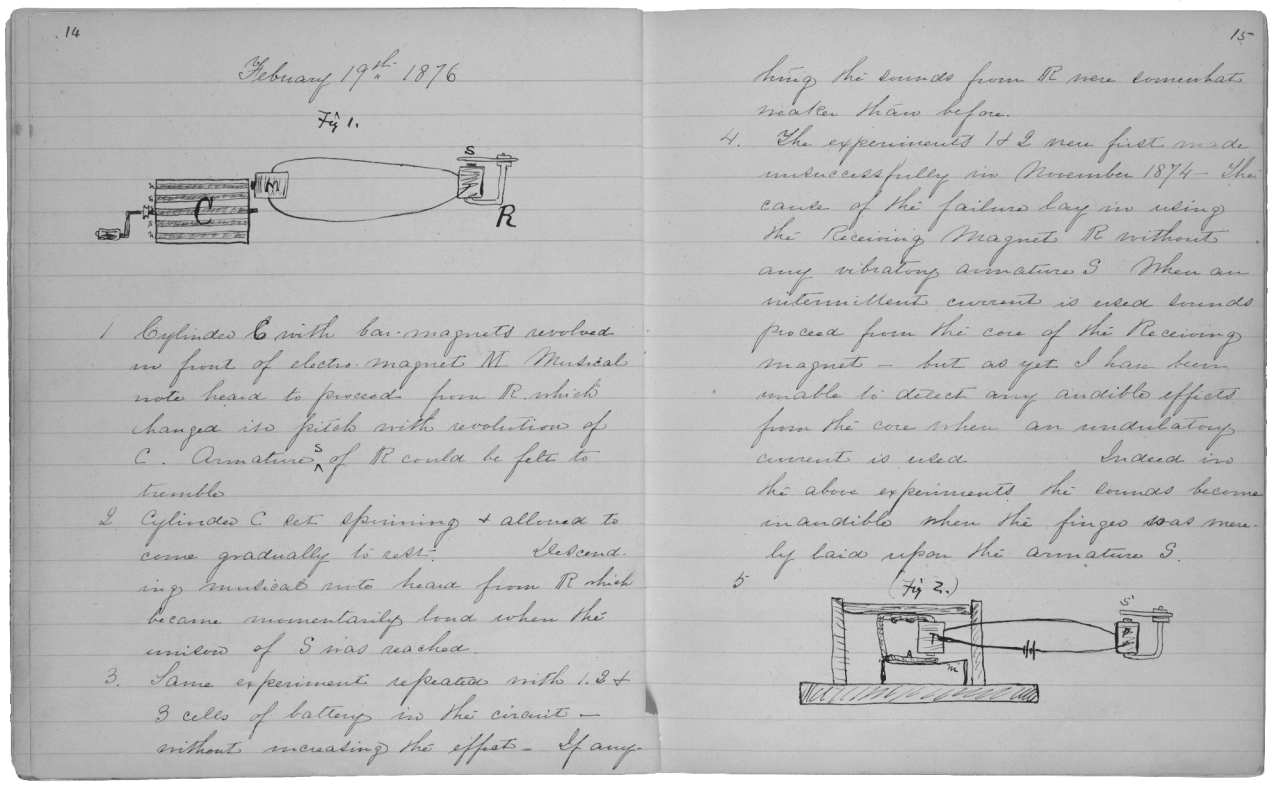 14
Febuary 19th 1876
Fig 1.
S
n
s
n
s
n
C
M
R
1 Cylinder C with bar-magnets revolved
in front of electro-magnet M Musical
note heard to proceed from R which
changed its pitch with revolution of
C. Armature S of R could be felt to
tremble
2 Cylinder C set spinning & allowed to
come gradually to rest- Descend-
ing musical note heard from R which
became momentarily loud when the
unison of S was reached.
3. Same experiment repeated with 1. 2 &
3 cells of battery in the circuit —
without increasing the effect — If any-
15
thing the sounds from R were somewhat
weaker than before.
4. The experiments 1 & 2 were first made
unsuccessfully in November 1874 — The
cause of the failure lay in using
the Receiving Magnet R without
any vibratory armature S When an
intermittent current is used sounds
proceed from the core of the Receiving
magnet — but as yet I have been
unable to detect any audible effects
from the core when an undulatory
current is used Indeed in
the above experiments the sounds become
inaudible when the finger was mere-
ly laid upon the armature S.
5
(Fig 2.)
S'
T
A
m